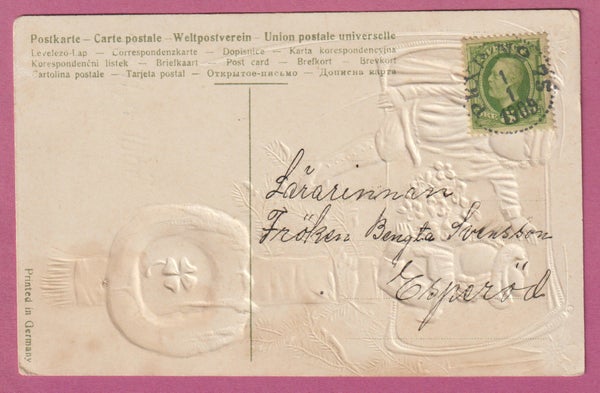 Postkarte – Carte postale – Weltpostverein – Union postale universelle
Levelező-Lap — Correspondenzkarte — Dopisnice — Karta korespondencyjna
Korespondenční lístek — Briefkaart — Post card — Brefkort — Brevkort
Cartolina postale — Tarjeta postal — Открытое-письмо — Дописна карта
PKXP N:o 95
1
1
1908
Lärarinnan
Fröken Bengta Svensson
Esperöd
Printed in Germany